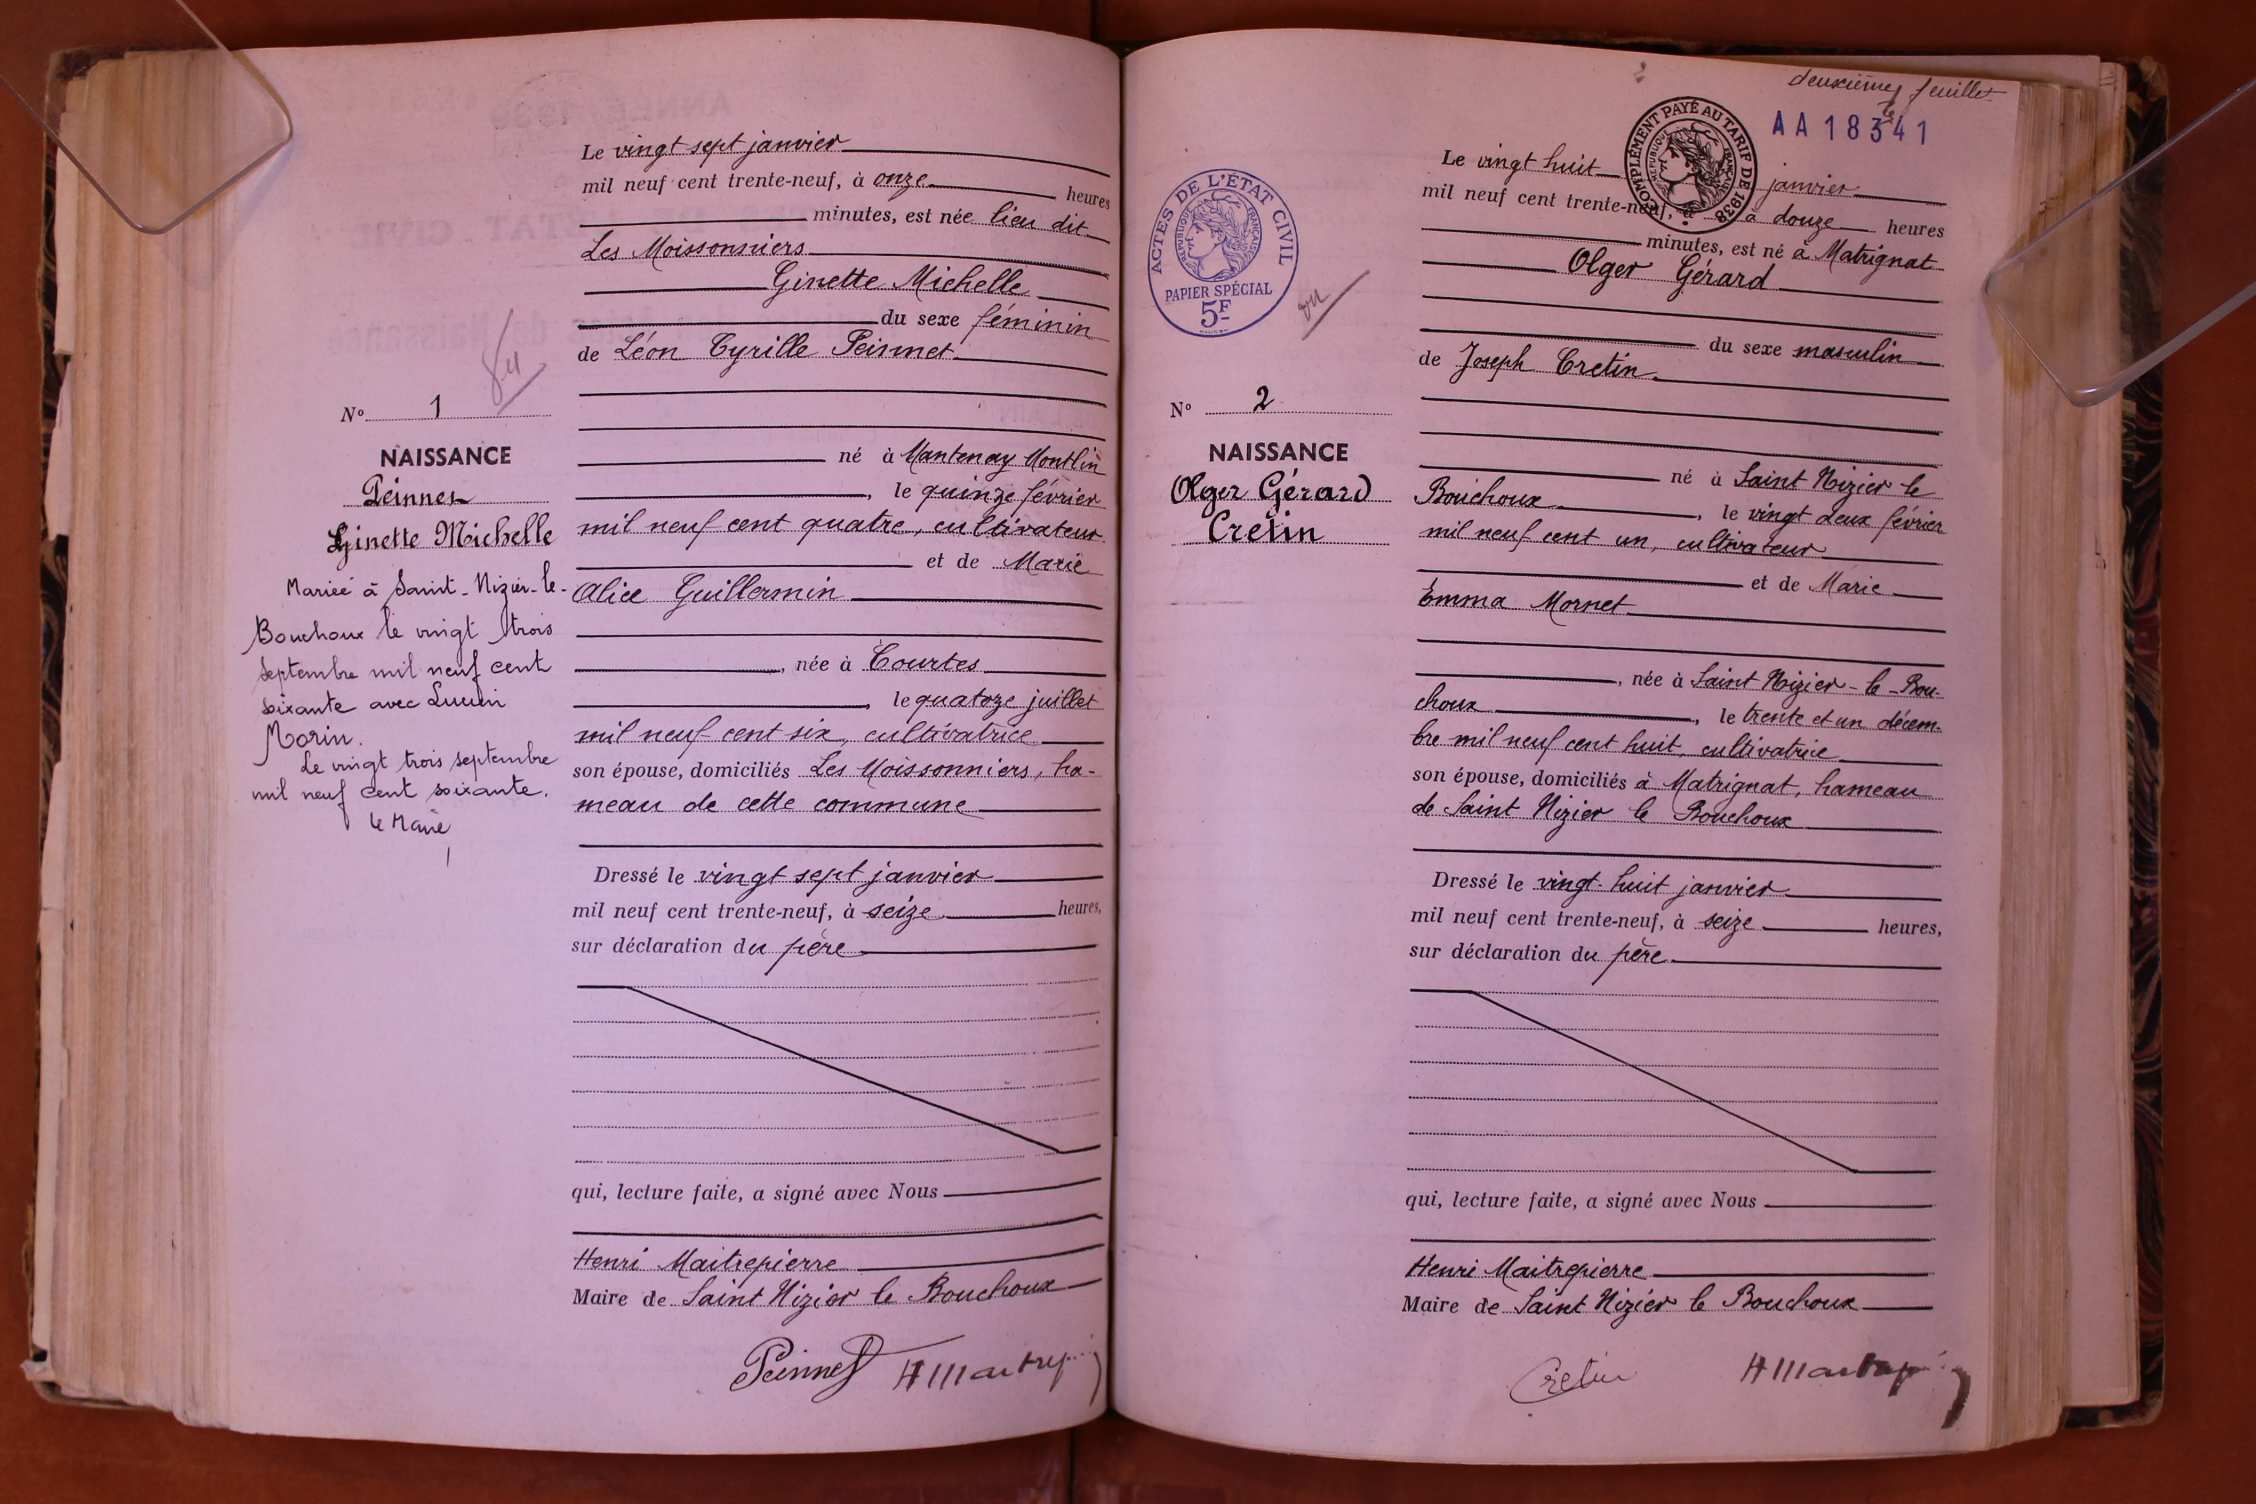 Le vingt sept janvier
mil neuf cent trente-neuf, à onze heures
minutes, est née lieu dit
Les Moissonniers
Ginette Michelle
du sexe féminin
de Léon Cyrille Peinnet
N° 1
né à Mantenay Montlin
NAISSANCE
, le quinze février
Peinnet
mil neuf cent quatre, cultivateur
Ginette Michelle
et de Marie
Mariée à Saint-Nizier-le-
Alice Guillermin
Bouchoux le vingt trois
septembre mil neuf cent
, née à Courtes
soixante avec Lucien
, le quatoze juillet
Morin.
mil neuf cent six, cultivatrice
Le vingt trois septembre
son épouse, domiciliés Les Moissonniers, ha-
mil neuf cent soixante.
meau de cette commune
Le Maire
Dressé le vingt sept janvier
mil neuf cent trente-neuf, à seize heures,
sur déclaration du père
qui, lecture faite, a signé avec Nous
Henri Maitrepierre
Maire de Saint Nizier le Bouchoux
Peinnet
deuxième feuillet
AA 18341
COMPLÉMENT PAYÉ AU TARIF DE 1938
REPUBLIQUE FRANÇAISE
ACTES DE L'ÉTAT CIVIL
REPUBLIQUE FRANÇAISE
PAPIER SPÉCIAL
5F
Le vingt huit janvier
mil neuf cent trente-neuf, à à douze heures
minutes, est né à Matrignat
Olger Gérard
du sexe masculin
de Joseph Cretin
N° 2
NAISSANCE
né à Saint Nizier le
Olger Gérard
Bouchoux , le vingt deux février
Cretin
mil neuf cent un, cultivateur
et de Marie
Emma Mornet
, née à Saint Nizier-le-Bou-
choux , le trente et un décem-
bre mil neuf cent huit, cultivatrice
son épouse, domiciliés à Matrignat, hameau
de Saint Nizier le Bouchoux
Dressé le vingt-huit janvier
mil neuf cent trente-neuf, à seize heures,
sur déclaration du père
qui, lecture faite, a signé avec Nous
Henri Maitrepierre
Maire de Saint Nizier le Bouchoux
Cretin